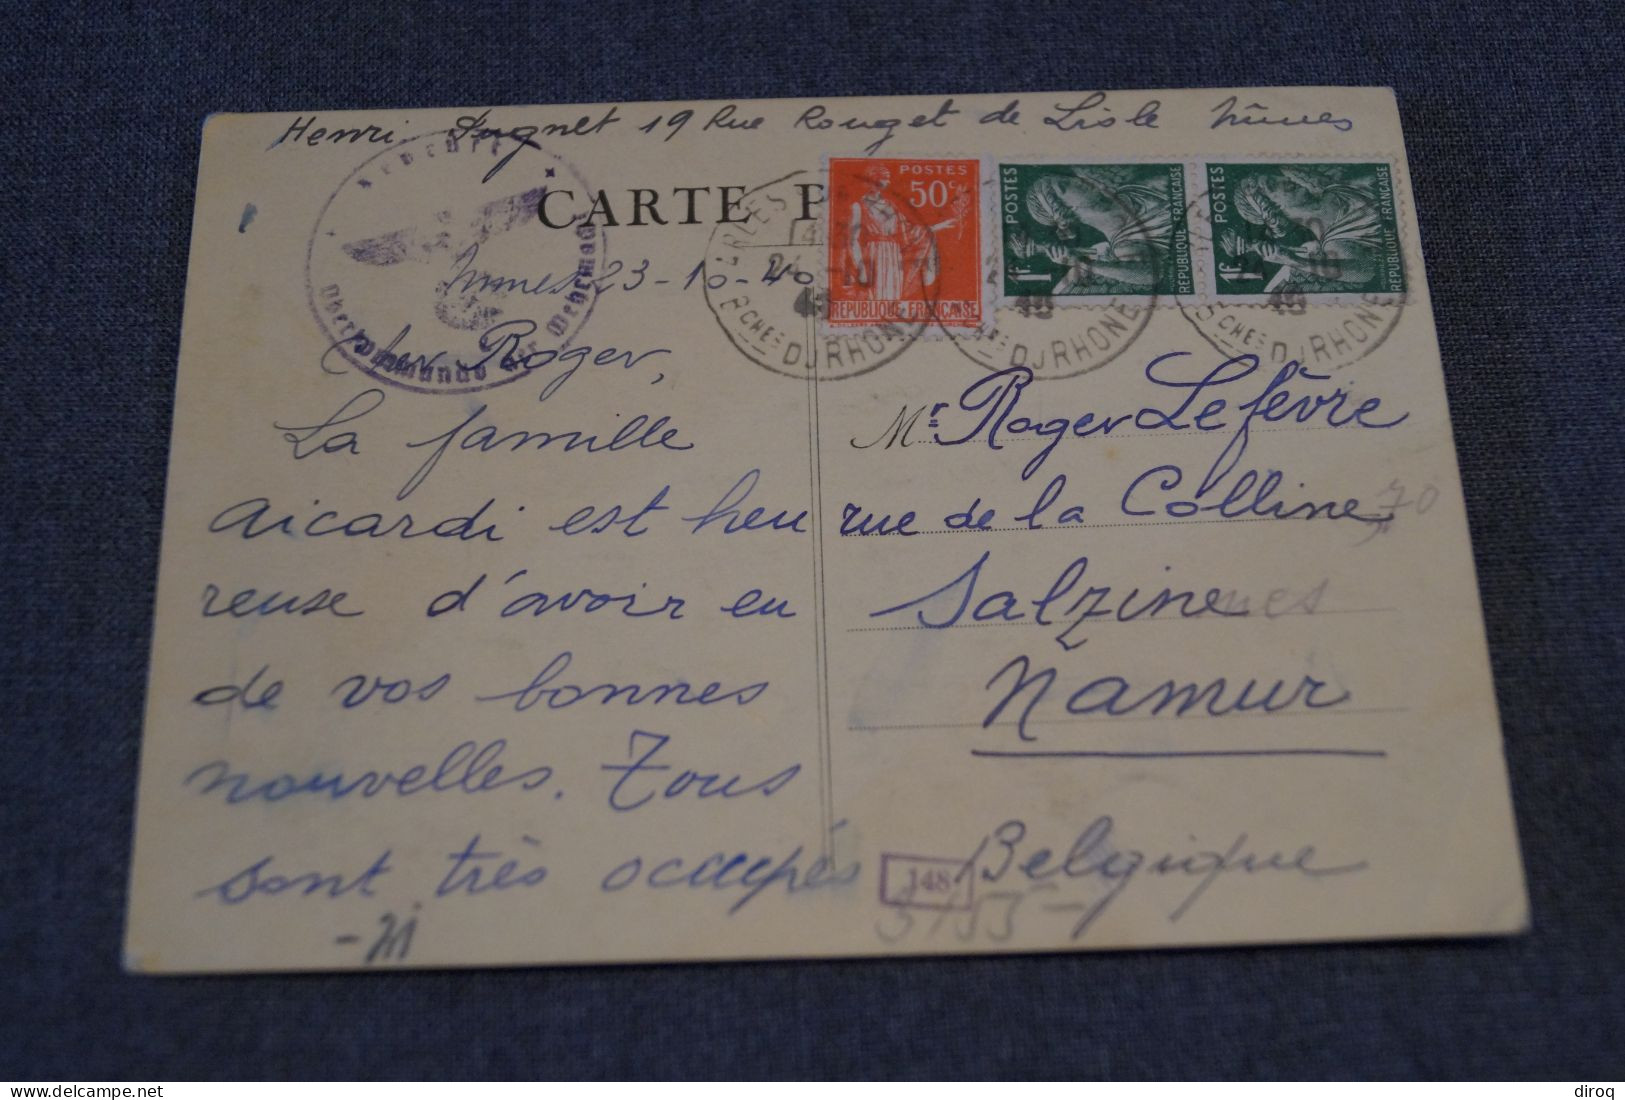 Henri Sugnet 19 Rue Rouget de Lisle Nîmes
CARTE P
Geöffnet
Oberkommando der Wehrmacht
Nimes 23-10-40
Cher Roger,
La famille
Aicardi est heu
reuse d'avoir eu
de vos bonnes
nouvelles. Tous
sont très occupés
POSTES
50c
REPUBLIQUE FRANÇAISE
POSTES
1F
REPUBLIQUE FRANÇAISE
POSTES
1F
REPUBLIQUE FRANÇAISE
ARLES
14 30
24 -10
40
BCHES DU RHONE
Mr Roger Lefèvre
rue de la Colline 70
Salzinnes
Namur
Belgique
148
diroq